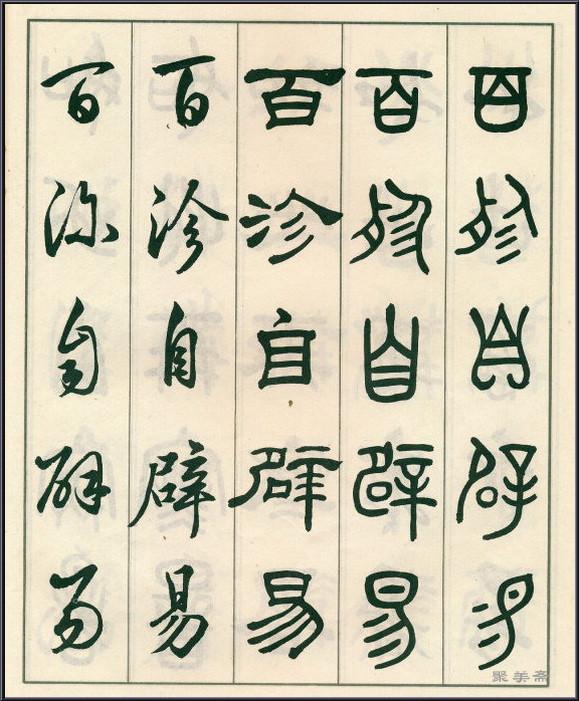 百殄自辟易
百殄自辟易
百沴自辟易
百沴自辟易
百沴自辟易
聚美斋